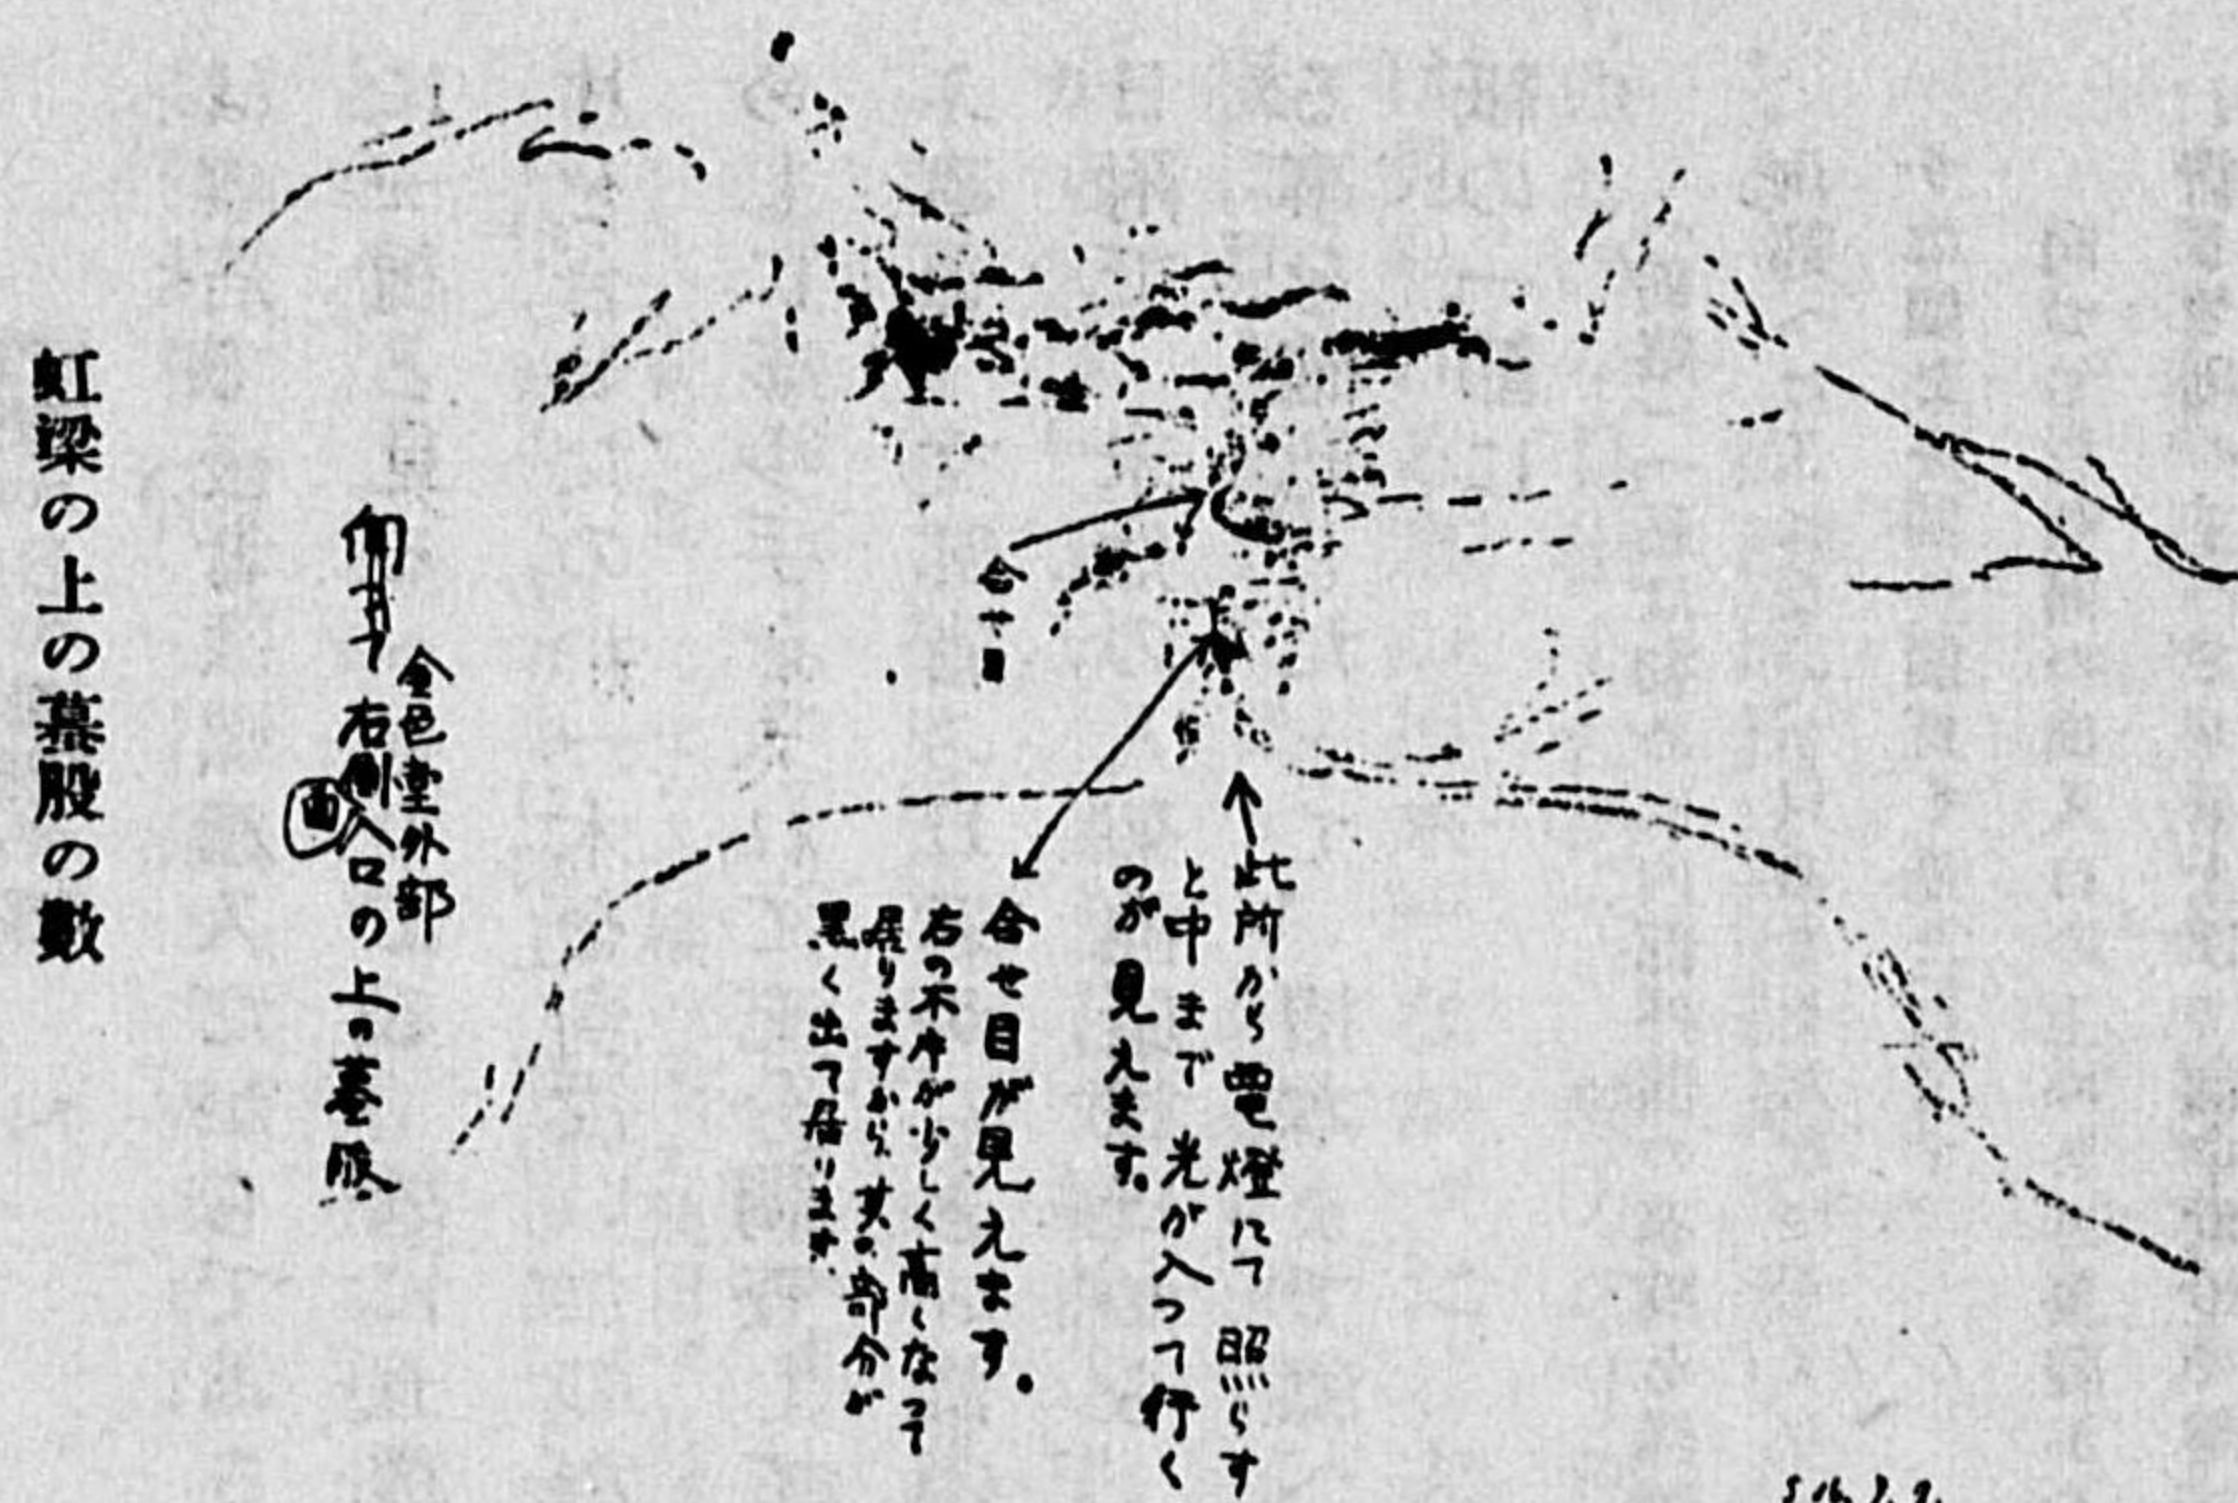 此所から電燈にて照らす
と中まで光が入つて行く
のが見えます。
合せ目が見えます。
右の木片が少しく高くなつて
居りますから、其の部分が
黒く出て居ります。
合せ目
金色堂外部
右側入口の上の蟇股
面
虹梁の上の蟇股の數